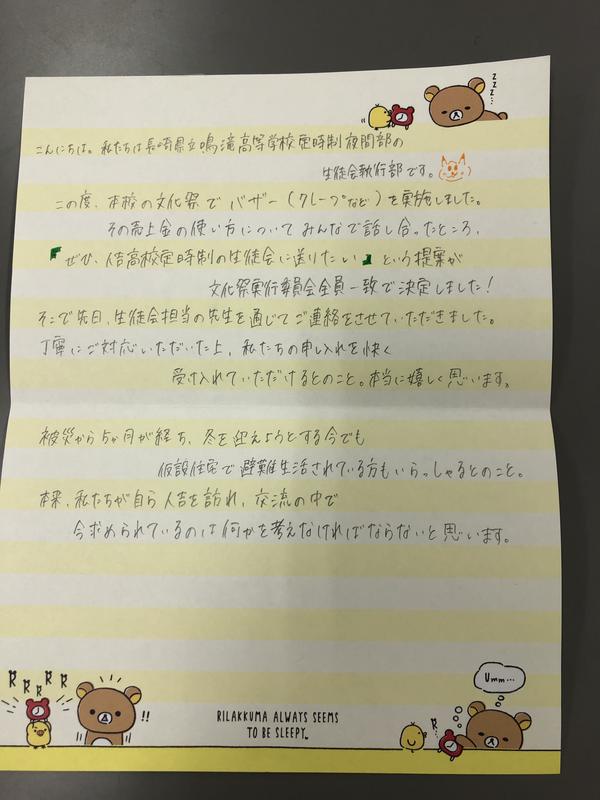 zzz...
こんにちは。私たちは長崎県立鳴滝高等学校定時制夜間部の
生徒会執行部です。
この度、本校の文化祭でバザー(クレープなど)を実施しました。
その売上金の使い方についてみんなで話し合ったところ、
『ぜひ、人吉高校定時制の生徒会に送りたい』という提案が
文化祭実行委員会全員一致で決定しました！
そこで先日、生徒会担当の先生を通じてご連絡をさせていただきました。
丁寧にご対応いただいた上、私たちの申し入れを快く
受け入れていただけるとのこと。本当に嬉しく思います。
被災から5か月が経ち、冬を迎えようとする今でも
仮設住宅で避難生活されている方もいらっしゃるとのこと。
本来、私たちが自ら人吉を訪れ、交流の中で
今求められているのは何かを考えなければならないと思います。
RRRRR
!!
RILAKKUMA ALWAYS SEEMS
TO BE SLEEPY.
R..
Umm...